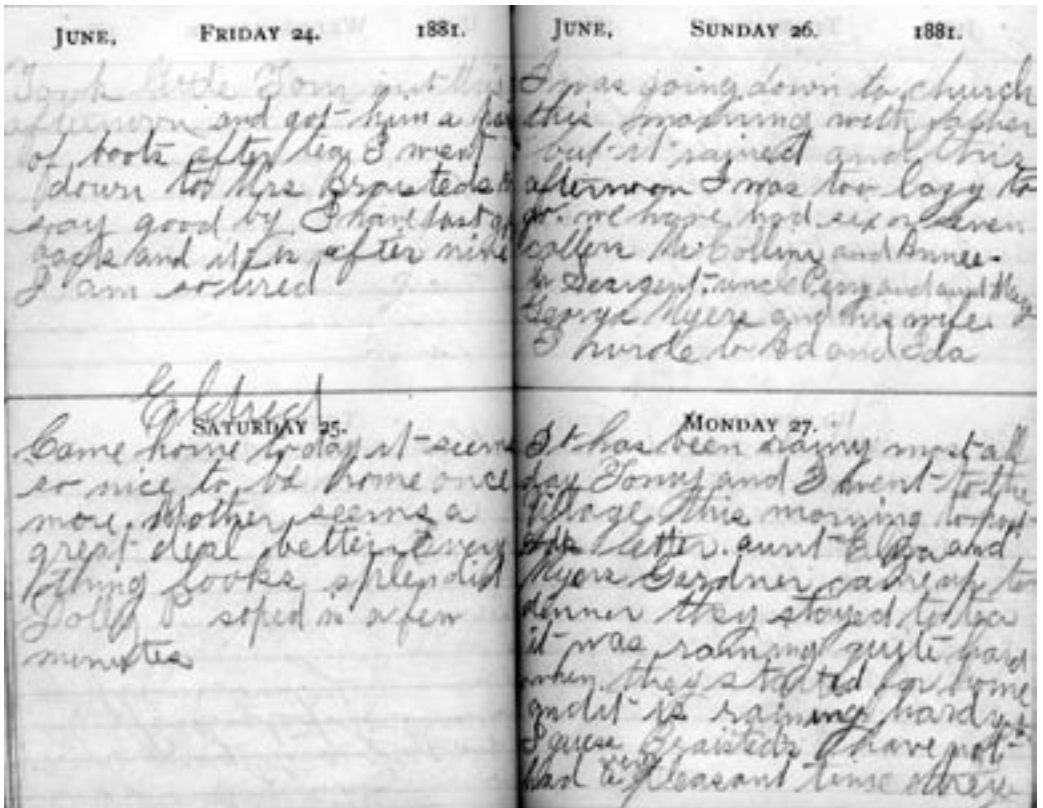 JUNE, FRIDAY 24. 1881.
Took little Tom out this
afternoon and got him a pair
of boots after tea I went
down to Mrs Braisteds to
say good by I have just got
back and it is after nine
I am so tired
Eldred
SATURDAY 25.
Came home today it seems
so nice to be home once
more. Mother seems a
great deal better. Every
thing looks splendid
Dolly P. soped in a few
minutes
JUNE, SUNDAY 26. 1881.
I was going down to church
this morning with father
but it rained and this
afternoon I was too lazy to
go. we have had six or seven
callers Mr Collins and Annee.
Mr Sergent. uncle Perry and aunt
George Myers and his wife.
I wrote to Ed and Ida
MONDAY 27.
It has been rainy most all
day Tommy and I went to the
village this morning to
letter. aunt Eliza and
Myers Gardner came up to
dinner they stayed to tea
it was raining quite hard
when they started for home
and it is raining hard yet
I guess Braisteds have not
had a very pleasant time